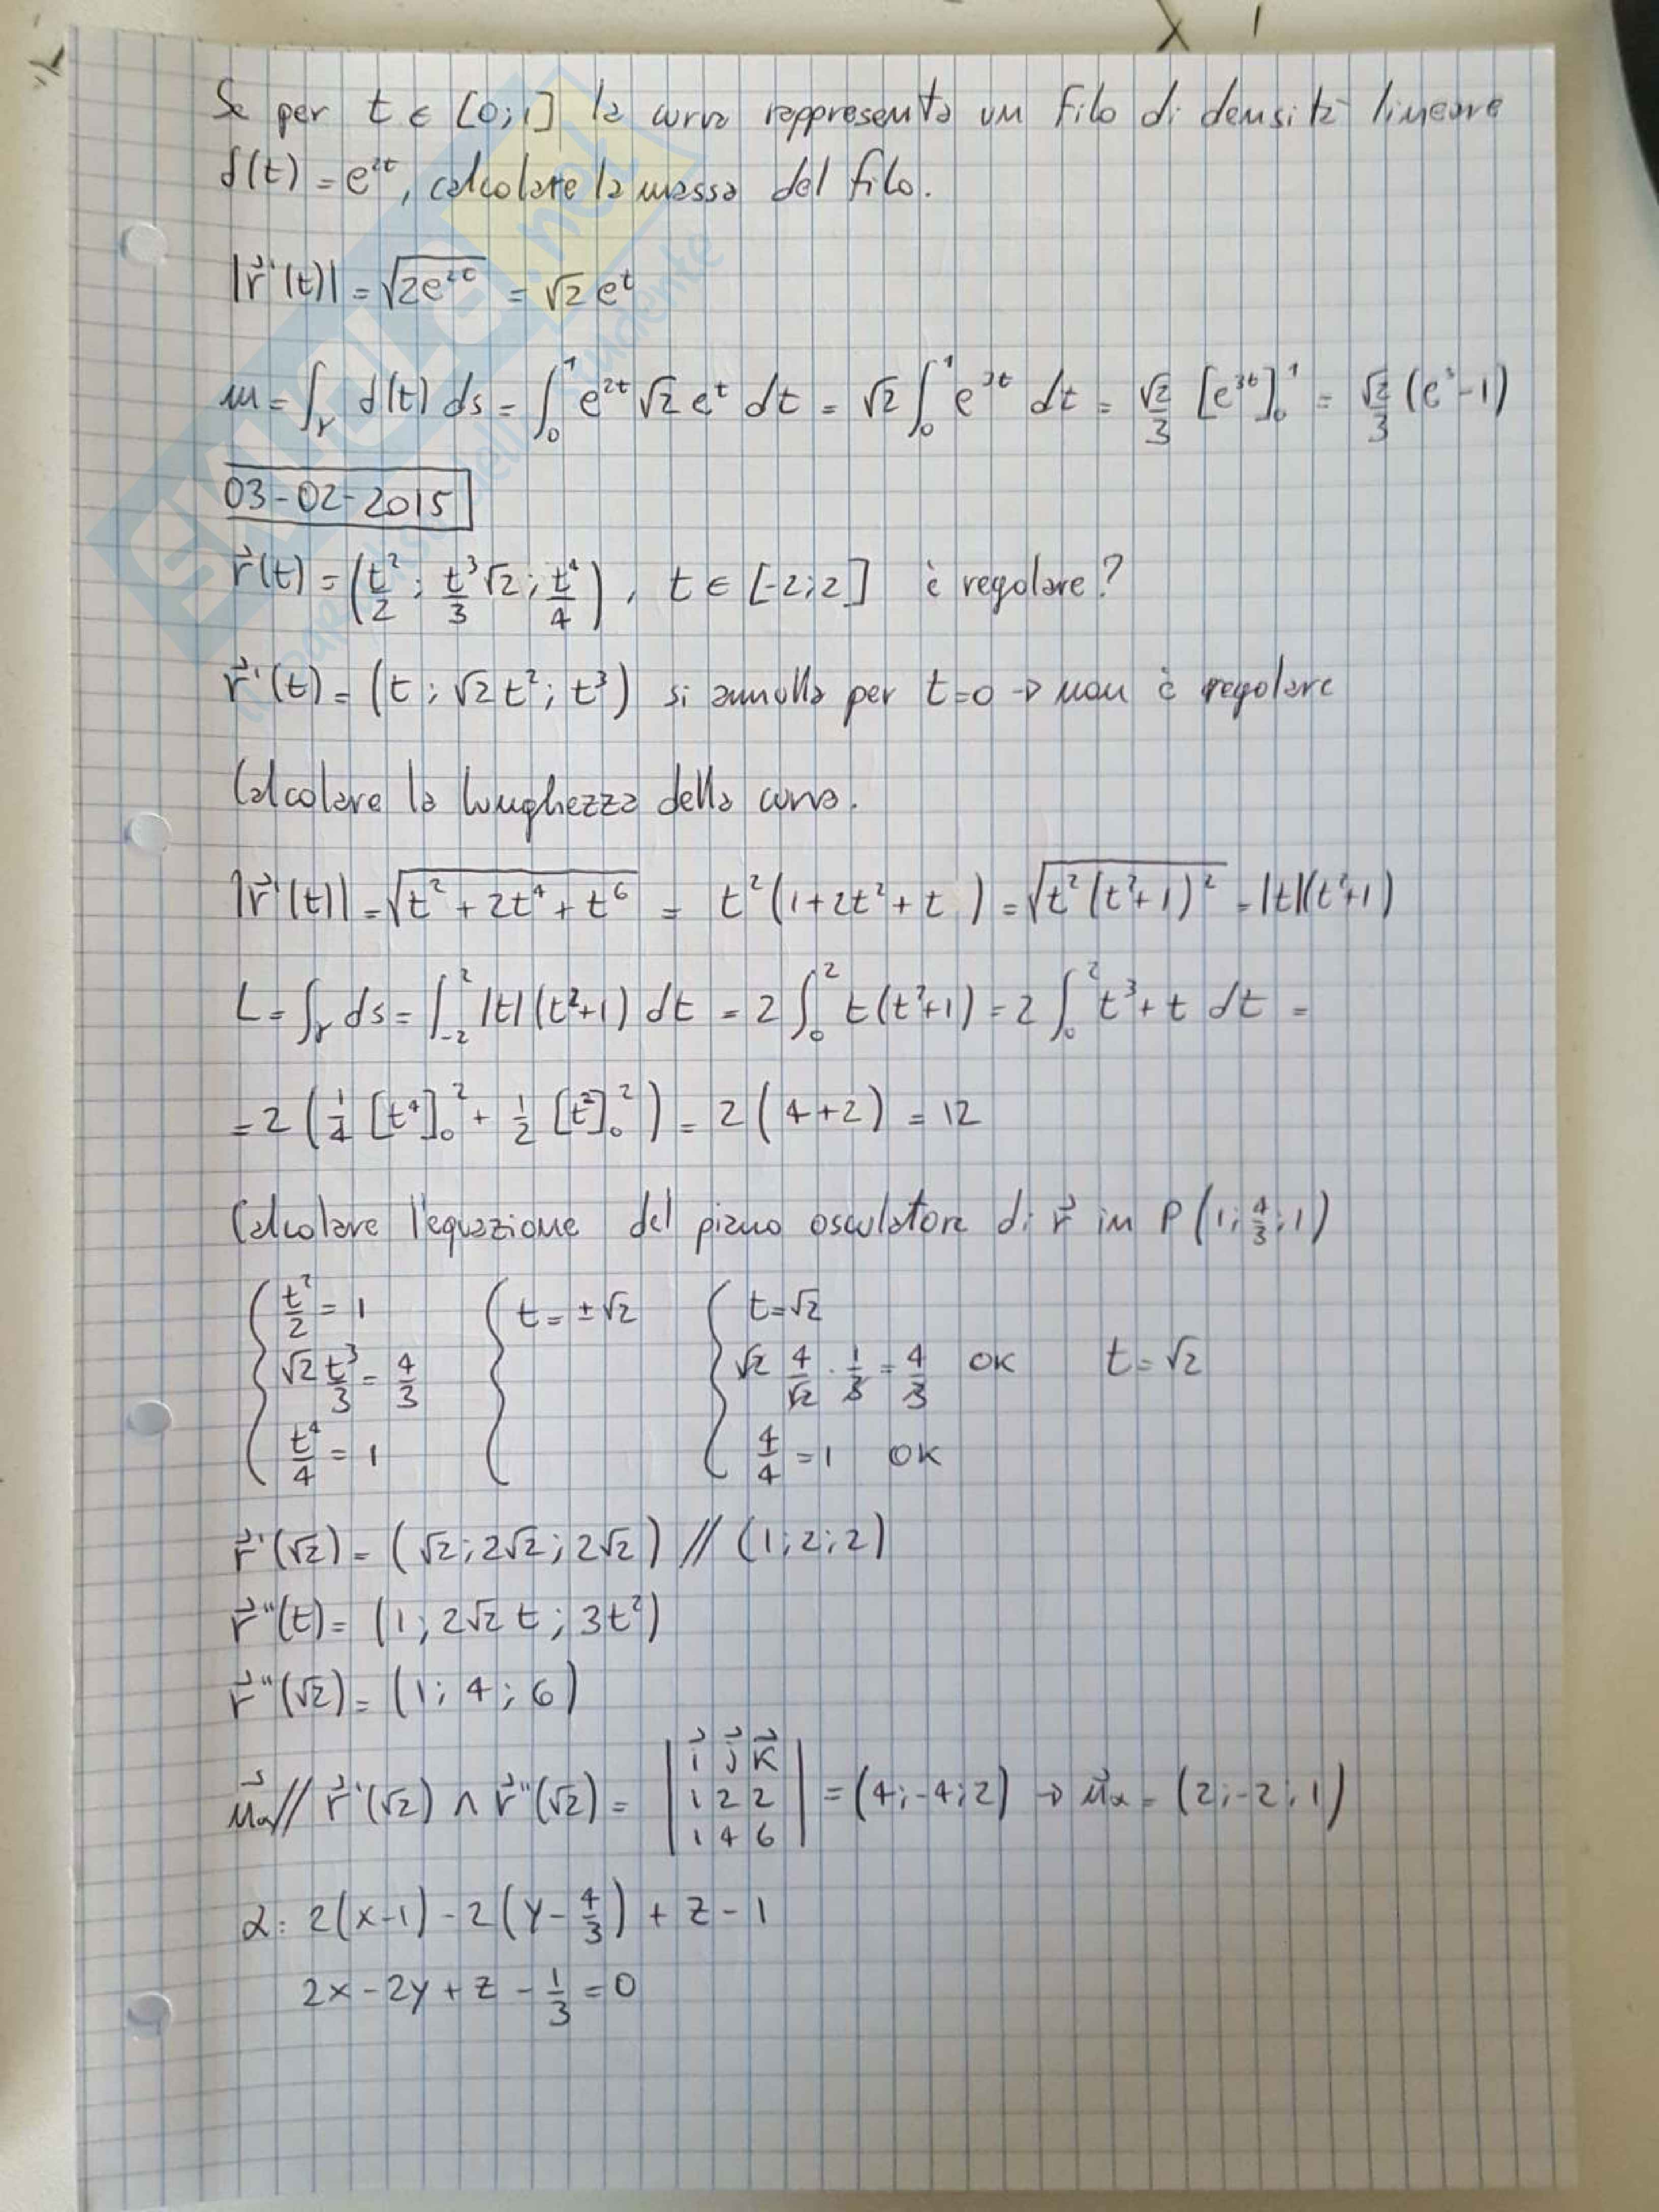 Se per t ∈ [0;1] la curva rappresenta un filo di densità lineare
δ(t) = e²ᵗ, calcolare la massa del filo.
|r⃗'(t)| = √(2e²ᵗ) = √2 eᵗ
m = ∫_γ δ(t) ds = ∫₀¹ e²ᵗ √2 eᵗ dt = √2 ∫₀¹ e³ᵗ dt = √2/3 [e³ᵗ]₀¹ = √2/3 (e³-1)
03-02-2015
r⃗(t) = (t²/2 ; t³/3 √2 ; t⁴/4), t ∈ [-2;2] è regolare?
r⃗'(t) = (t ; √2 t² ; t³) si annulla per t=0 → non è regolare
Calcolare la lunghezza della curva.
|r⃗'(t)| = √(t² + 2t⁴ + t⁶) = t²(1+2t²+t ) = √(t²(t²+1)²) = |t|(t²+1)
L = ∫_γ ds = ∫₋₂² |t|(t²+1) dt = 2 ∫₀² t(t²+1) = 2 ∫₀² t³+t dt =
= 2 (1/4 [t⁴]₀² + 1/2 [t²]₀²) = 2 (4+2) = 12
Calcolare l'equazione del piano osculatore di r⃗ in P(1; 4/3; 1)
{ t²/2 = 1 { t = ±√2 { t=√2
√2 t³/3 = 4/3 √2 4/√2 · 1/3 = 4/3 OK t=√2
t⁴/4 = 1 4/4 = 1 OK
r⃗'(√2) = (√2; 2√2; 2√2) // (1; 2; 2)
r⃗''(t) = (1; 2√2 t; 3t²)
r⃗''(√2) = (1; 4; 6)
n⃗α // r⃗'(√2) ∧ r⃗''(√2) = | i⃗ j⃗ k⃗ | 1 2 2 | 1 4 6 | = (4;-4;2) → n⃗α = (2;-2;1)
α: 2(x-1) - 2(y - 4/3) + z - 1
2x - 2y + z - 1/3 = 0
SKUOLA.net